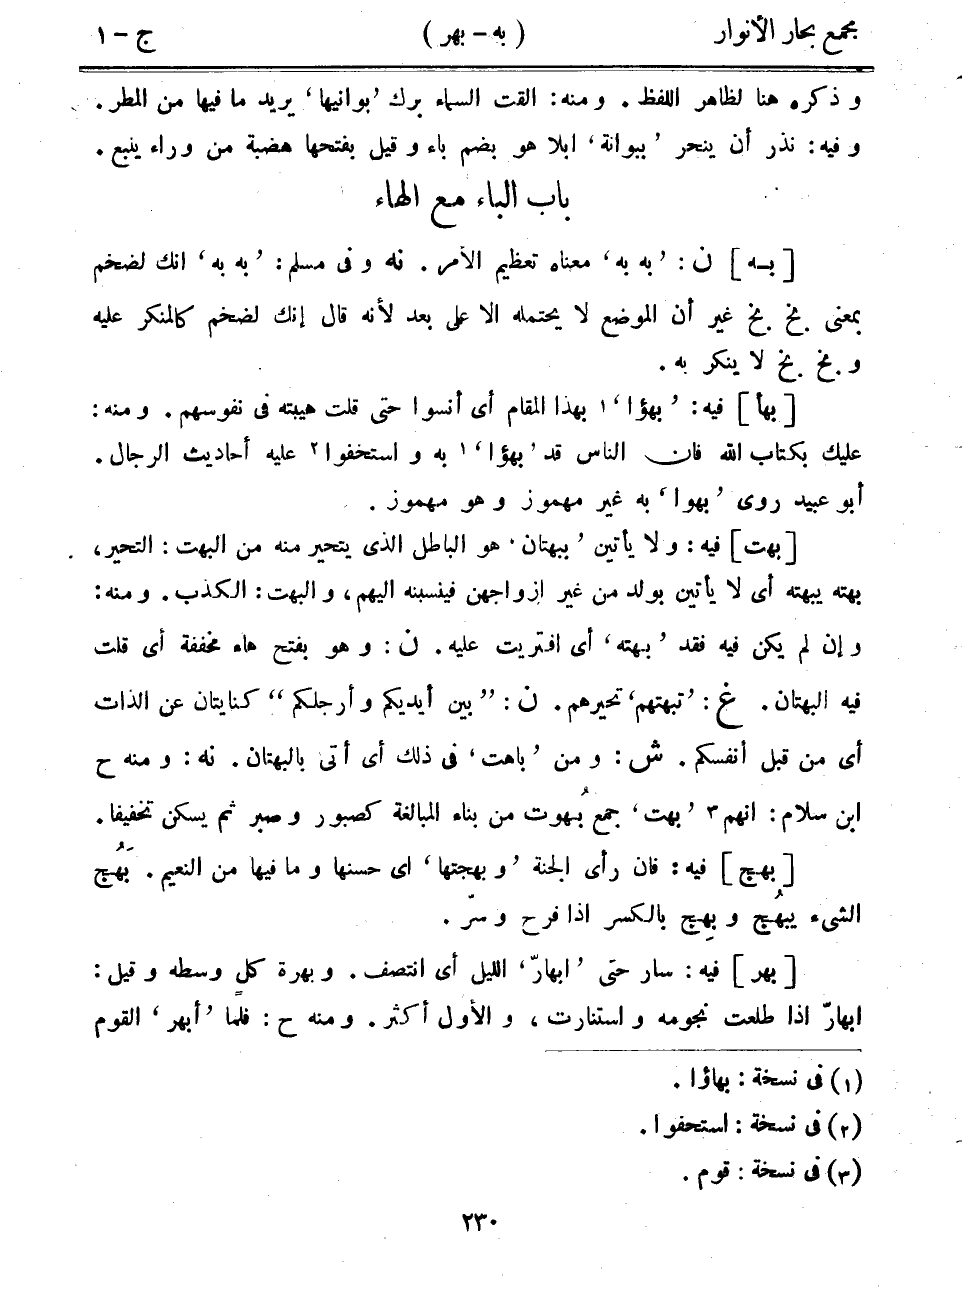 مجمع بحار الأنوار ( به - بهر ) ج - ١
و ذكره هنا لظاهر اللفظ . و منه: القت السماء برك ’بوانيها‘ يريد ما فيها من المطر .
و فيه: نذر أن ينحر ’ببوانة‘ ابلا هو بضم باء و قيل بفتحها هضبة من وراء ينبع .
باب الباء مع الهاء
[به] ن: ’به به‘ معناه تعظيم الأمر . نه و فى مسلم: ’به به‘ انك لضخم
بمعنى بخ بخ غير أن الموضع لا يحتمله الا على بعد لأنه قال إنك لضخم كالمنكر عليه
و بخ بخ لا ينكر به .
[بهأ] فيه: ’بهؤا‘١ بهذا المقام أى أنسوا حتى قلت هيبته فى نفوسهم . و منه:
عليك بكتاب الله فان الناس قد ’بهؤا‘١ به و استخفوا٢ عليه أحاديث الرجال .
أبو عبيد روى ’بهوا‘ به غير مهموز و هو مهموز .
[بهت] فيه: و لا يأتين ’ببهتان‘ هو الباطل الذى يتحير منه من البهت: التحير،
بهته يبهته أى لا يأتين بولد من غير ازواجهن فينسبنه اليهم، و البهت: الكذب . و منه:
و إن لم يكن فيه فقد ’بهته‘ أى افتريت عليه . ن: و هو بفتح هاء مخففة أى قلت
فيه البهتان . غ: ’تبهتهم‘ تحيرهم . ن: ’’بين أيديكم و أرجلكم‘‘ كنايتان عن الذات
أى من قبل أنفسكم . ش: و من ’باهت‘ فى ذلك أى أتى بالبهتان . نه: و منه ح
ابن سلام: انهم٣ ’بهت‘ جمع بَهُوت من بناء المبالغة كصبور و صبر ثم يسكن تخفيفا .
[بهج] فيه: فان رأى الجنة ’و بهجتها‘ اى حسنها و ما فيها من النعيم . بَهُج
الشىء يبهُج و بهِج بالكسر اذا فرح و سرّ .
[بهر] فيه: سار حتى ’ابهارّ‘ الليل أى انتصف . و بهرة كل وسطه و قيل:
ابهارّ اذا طلعت نجومه و استنارت، و الأول أكثر . و منه ح: فلما ’أبهر‘ القوم
(١) فى نسخة : بهاؤا .
(٢) فى نسخة : استحفوا .
(٣) فى نسخة : قوم .
٢٣٠